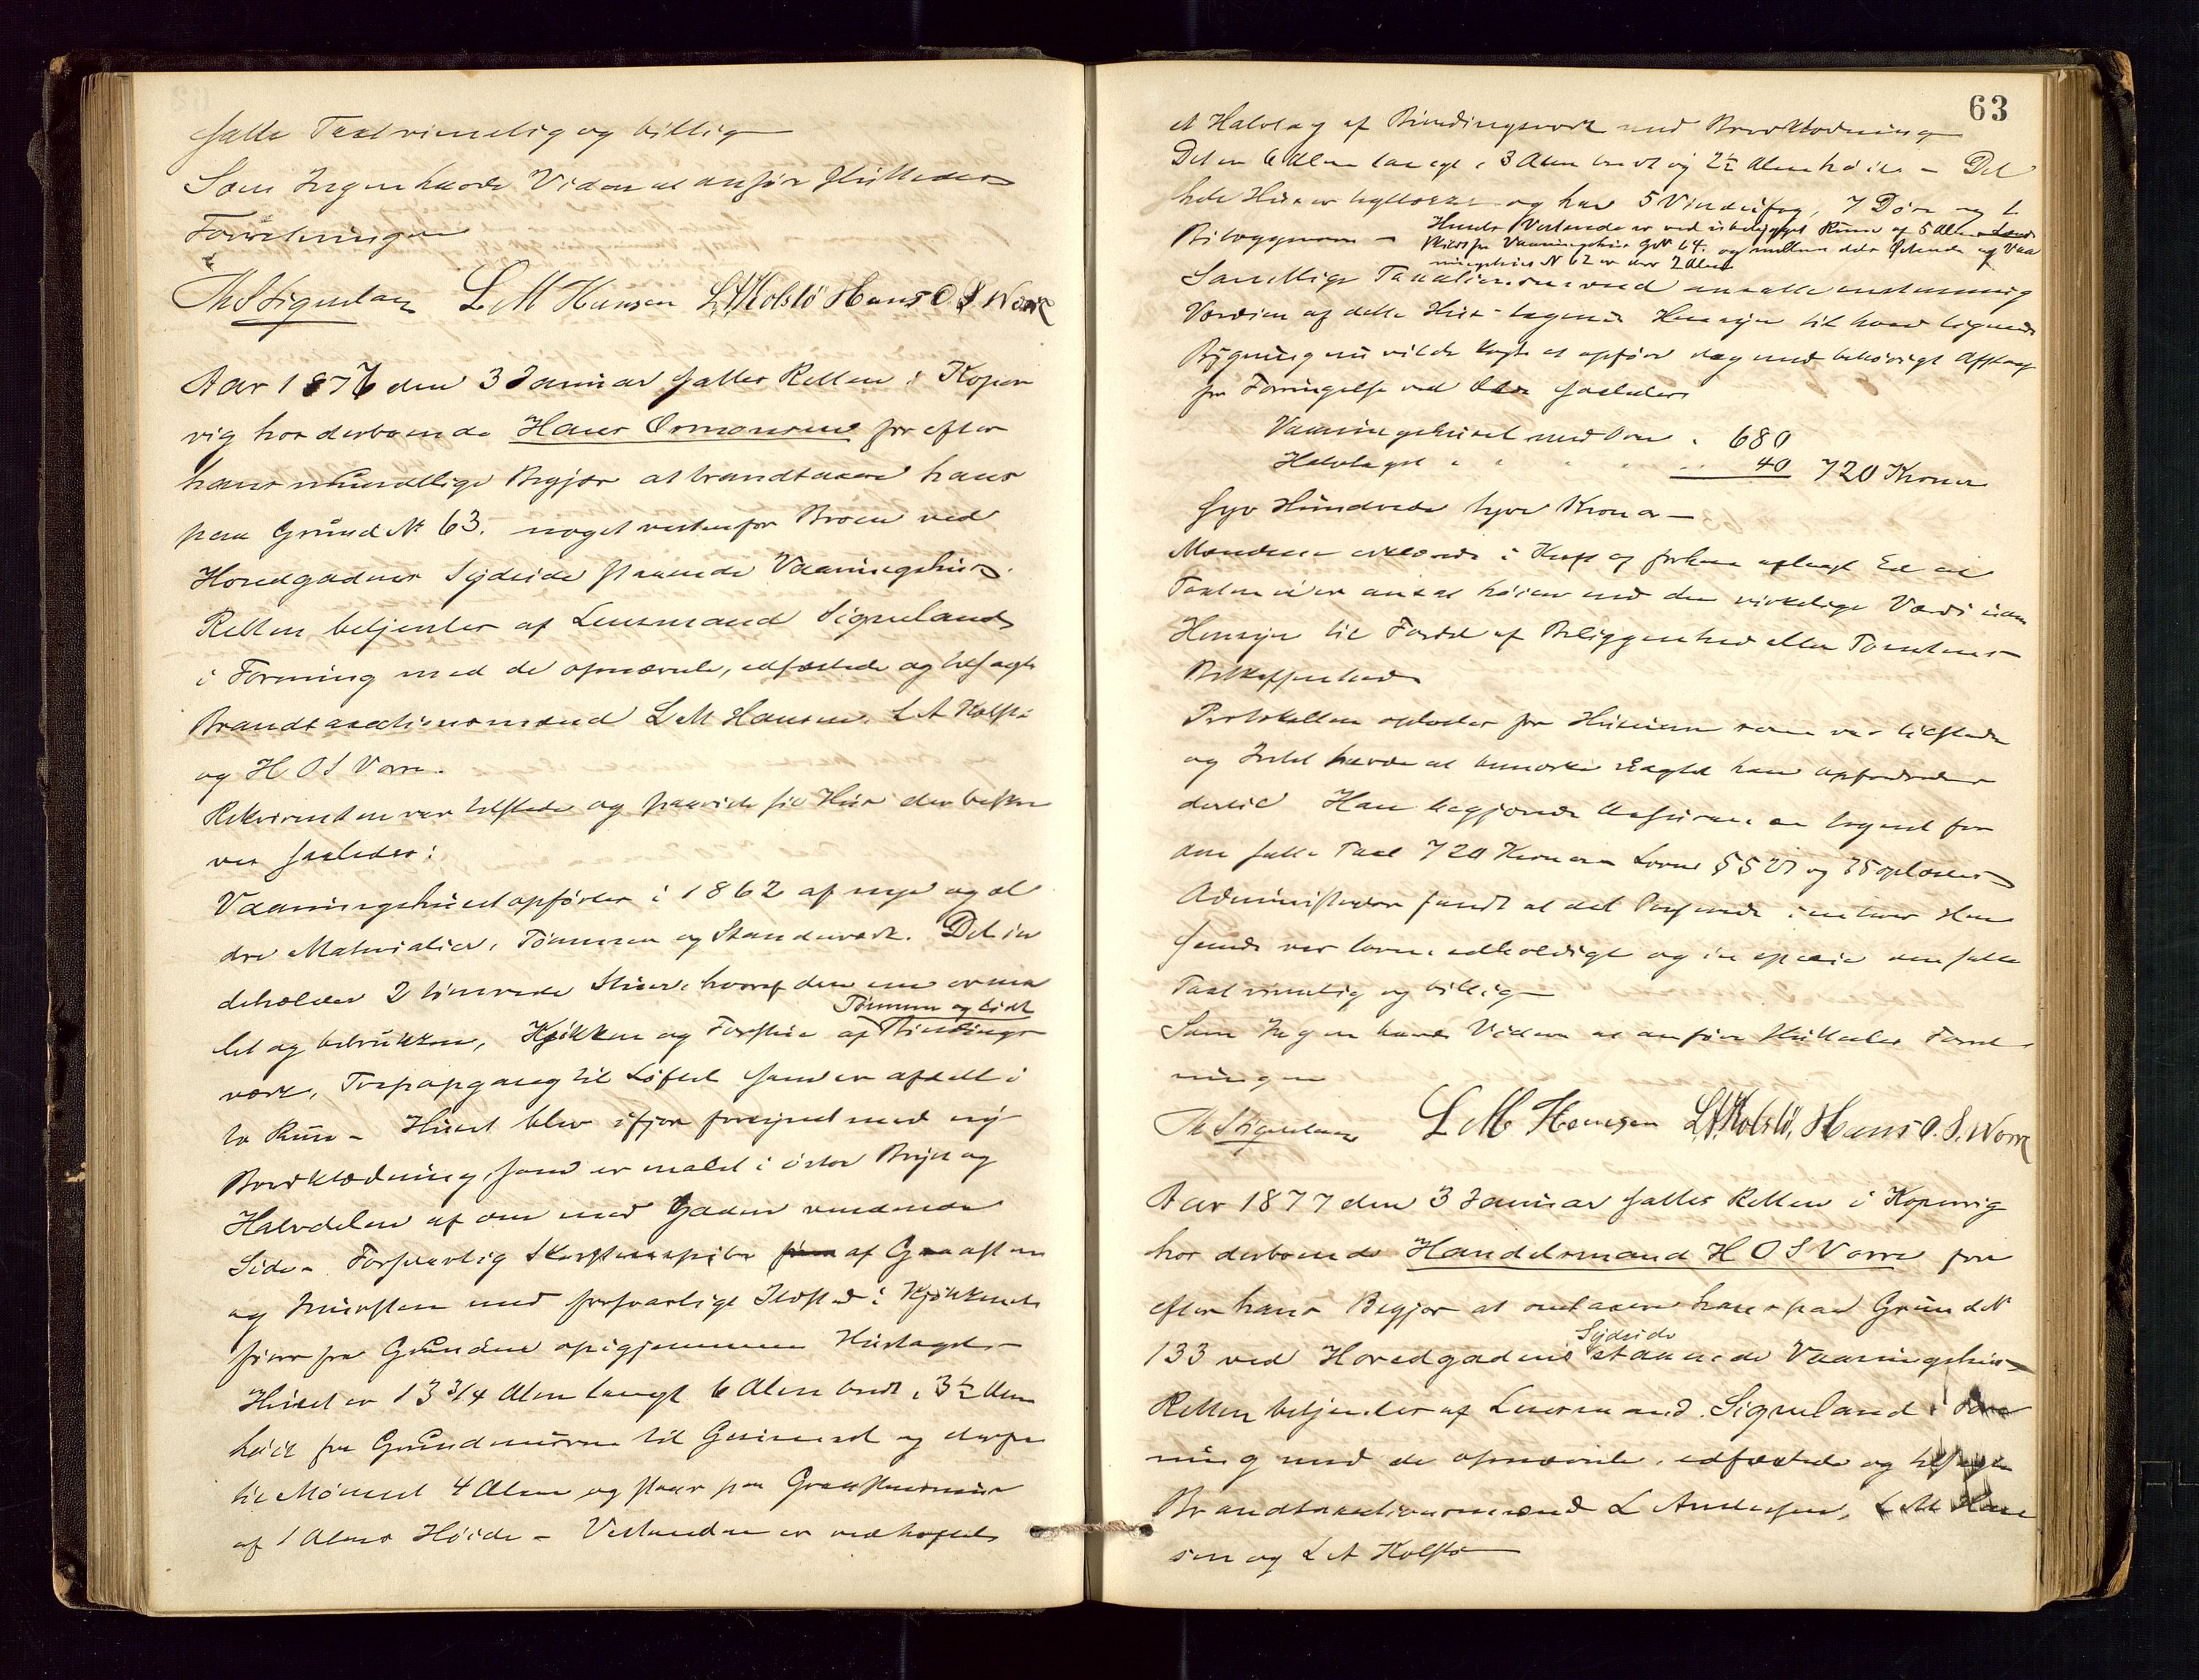 satte Taxt rimelig og billig
Som Ingen havde Videre at anføre sluttedes
Forretningen
Th Signeland L M Hansen L A Kolstø Hans O. S. Worre
Aar 1877 den 3 Januar sattes Retten i Koper
vig hos derboende Hans Osmonsen for efter
hans mundtlige Begjær at brandtaxere hans
paa Grund № 63. noget vestenfor Broen ved
Hovedgadens Sydside staaende Vaaningshus.
Retten betjentes af Lensmand Signeland
i Forening med de opnævnte, edfæstede og tilsagte
Brandtaxationsmænd L M Hansen, L A Kolstø
og H O S Vorre.
Rekvirenten var tilstede og paaviste sit Hus der beskre
ves saaledes:
Vaaningshuset opførtes i 1862 af nye og æl
dre Materialier, Tømmer og Standværk. Det in
deholder 2 tømrede Stuer, hvoraf den ene er ma
Tømmer og lidt
let og betrukken, Kjøkken og Forstue af Bindings
værk, Trapopgang til Loftet som er afdelt i
to Rum – Huset blev ifjor forsynet med ny
Bordklædning, som er malet i østre Bryst og
Halvdelen af den mod Gaden vendende
Side – Forsvarlig Skorstenspibe af Graasten
og Mursten med forsvarligt Ildsted i Kjøkkenet
fører fra Grunden op igjennem Hustaget –
Huset er 13 3/4 Alen langt 6 Alen bredt, 3½ Alen
høit fra Grundmuren til Gesimset og derfra
til Mønnet 4 Alen og staar paa Graastensmur
af 1 Alens Høide – Vestenden er vedheftet
63
et Halvtag af Bindingsværk med Bordklædning
Det er 6 Alen langt, 3 Alen bredt og 2½ Alen høit – Det
hele Hus er og har 5 Vinduefag, 7 Døre og 1
Bilæggerovn – Husets Vestende er ved ubebygget Rum af 5 Alen
skilt fra Vaaningshus G№ 64. og mellem dets Østende og Vaa
ningshus № 62 er der 2 Alen
Samtlige Taxationsmænd ansatte enstemmig
Værdien af dette Hus – tagende Hensyn til hvad lignende
Bygning nu vilde koste at opføre dog med behørigt Afslag
for Forringelse ved Ælde saaledes
Vaaningshuset med Ovn . 680
Halvtaget " " " " 40 720 Kroner
Syv Hundrede tyve Kroner –
Mændene erklærede i Kraft af forhen aflagt Ed at
Taxten ei er ansat høiere end den virkelige Værdi uden
Hensyn til Fordel af Beliggenhed eller Tomtens
Beskaffenhed
Protokollen oplæstes for Huseieren som var tilstede
og Intet havde at bemærke uagtet han opfordredes
dertil Han begjærede Assurance tegnet for
den satte Taxt 720 Kroner Lovens §§ 27 og 35 oplæstes
Administrator fandt at det Passerede i enhver Hen
seende var lovmedholdigt og in specie den satte
Taxt rimelig og billig –
Som Ingen havde Videre at anføre sluttedes Forret
ningen
Th Signeland L M Hansen L A Kolstø, Hans O. S. Worre
Aar 1877 den 3 Januar sattes Retten i Kopervig
hos derboende Handelsmand H O S Vorre for
efter hans Begjær at omtaxere hans paa Grund №
Sydside
133 ved Hovedgadens staaende Vaaningshus –
Retten betjentes af Lensmand Signeland i Fore
ning med de opnævnte, edfæstede og tilsagte
Brandtaxationsmænd L Andersen, L M Han
sen og L A Kolstø